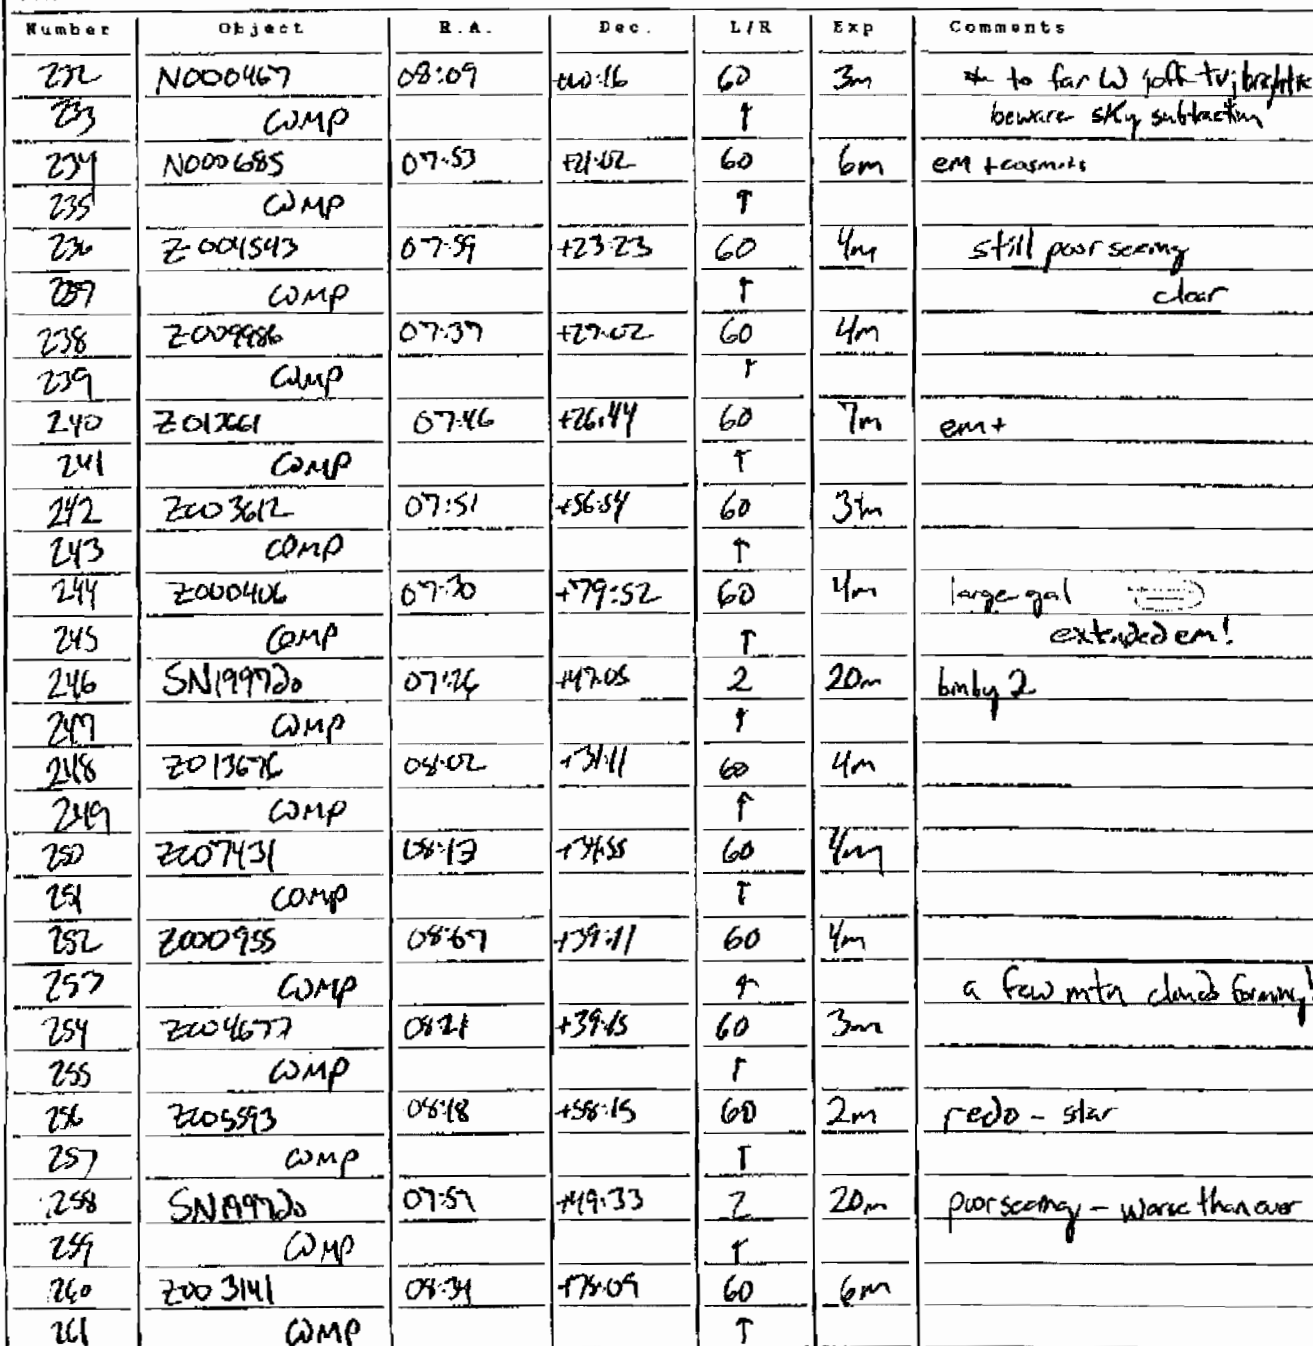 Number Object R.A. Dec. L/R Exp Comments
232 N000467 08:09 +00:16 60 3m * to far W off tv; bright *
233 COMP ↑ beware sky subtraction
234 N000685 07:53 +21:02 60 6m em +
235 COMP ↑
236 Z004543 07:59 +23:23 60 4m still poor seeing
237 COMP ↑ clear
238 Z009986 07:37 +27:02 60 4m
239 COMP ↑
240 Z012661 07:46 +26:44 60 7m em+
241 COMP ↑
242 Z003612 07:51 +56:54 60 3m
243 COMP ↑
244 Z000406 07:30 +79:52 60 4m large gal
245 COMP ↑ extended em!
246 SN1997do 07:26 +47:05 2 20m bin by 2
247 COMP ↑
248 Z013676 08:02 +31:11 60 4m
249 COMP ↑
250 Z007431 08:13 +34:55 60 4m
251 COMP ↑
252 Z000955 08:67 +39:11 60 4m
253 COMP ↑ a few mtn clouds forming!
254 Z004677 08:21 +39:15 60 3m
255 COMP ↑
256 Z005593 08:18 +58:15 60 2m redo - star
257 COMP ↑
258 SN1997do 07:51 +49:33 2 20m poor seeing - worse than ever
259 COMP ↑
260 Z003141 08:34 +75:09 60 6m
261 COMP ↑